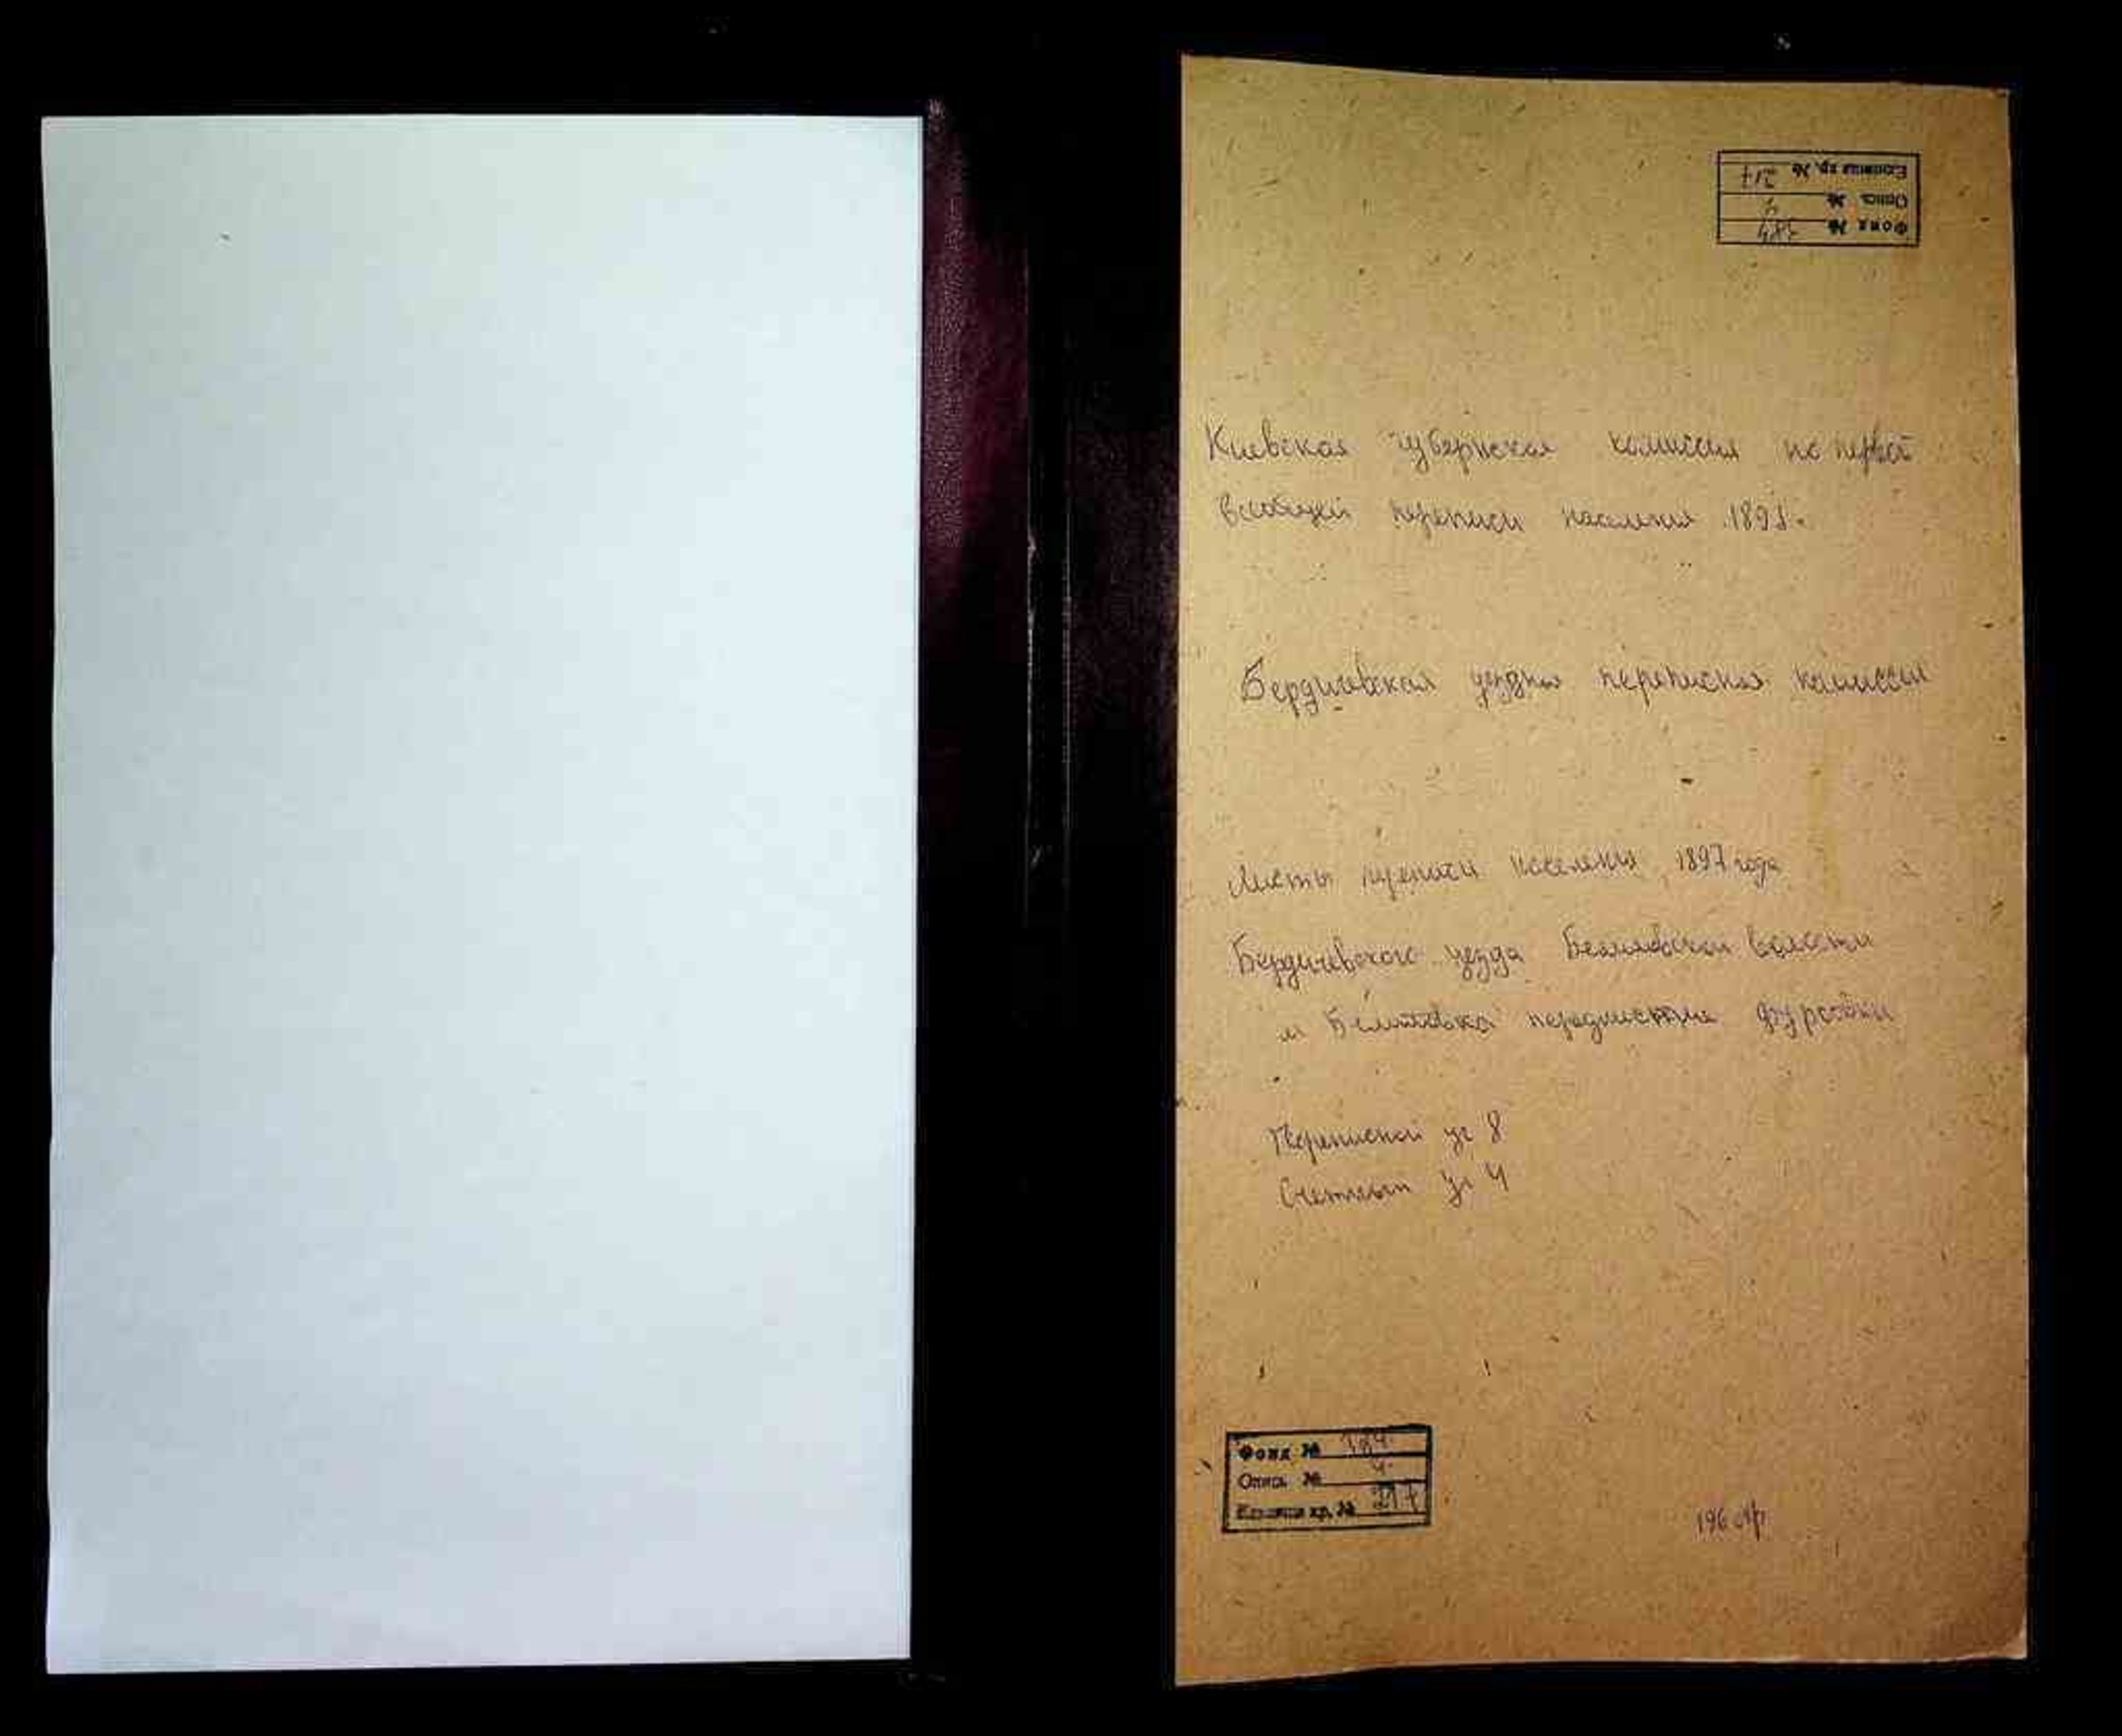 Единица хр. № 217
Опись № 4
Фонд № 384
Киевская губернская комиссия по первой
всеобщей переписи населения 1897.
Бердичевская уездная переписная комиссия
Листы переписи населения 1897 года
Бердичевского уезда Белиловской волости
м Белиловка предместье Фурсовки
Переписной уч 8
Счетный уч 4
Фонд № 384
Опись № 4
Единица хр. № 217